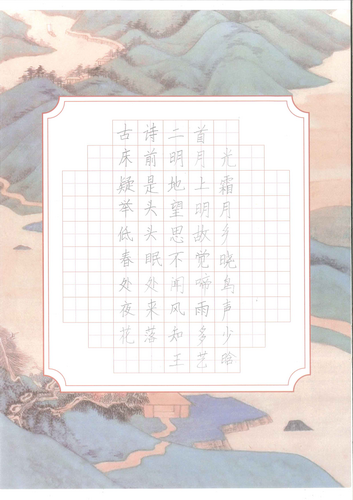 古诗二首
床前明月光
疑是地上霜
举头望明月
低头思故乡
春眠不觉晓
处处闻啼鸟
夜来风雨声
花落知多少
王艺